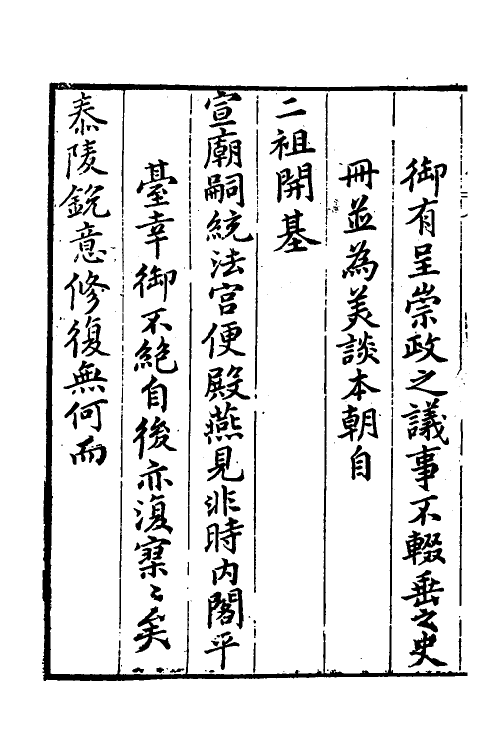 御有呈崇政之議事不輟垂之史
冊並為美談本朝自
二祖開基
宣廟嗣統法宮便殿燕見非時內閣平
臺幸御不絕自後亦復寥〻矣
泰陵銳意修復無何而